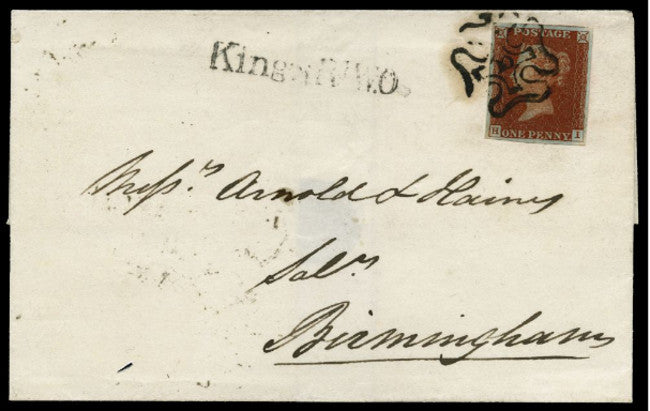 POSTAGE
H ONE PENNY I
Messrs. Arnold & Haines
Solrs.
Birmingham